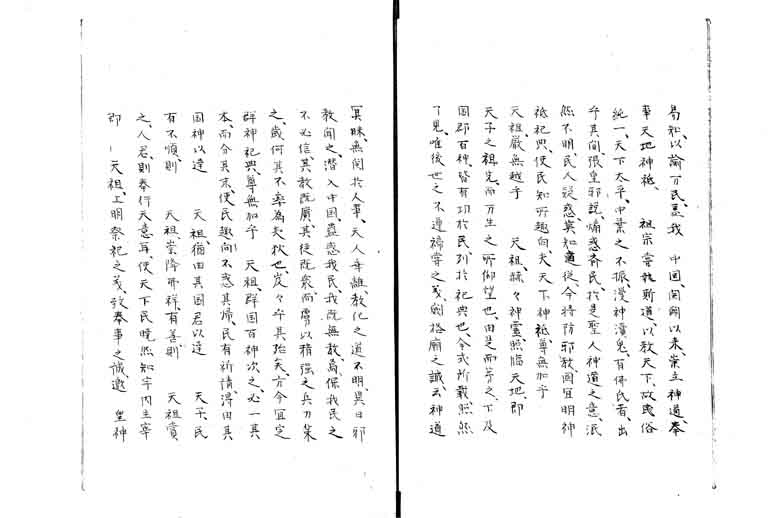 易知、以諭万民、蓋我 中国、開闢以来崇立神道、奉
事天地神祇、 祖宗嘗執斯道、以教天下、故夷俗
純一、天下太平、中葉之不振、漫神瀆鬼、百佛民耆、出
乎其間張皇邪説、煽惑斉民、於是聖人神道之意、泯
然不明、民人疑惑、莫知適従、今特防邪教、固宜明神
祇祀典、使民知所趣向矣、夫天下神祇、尊無加乎
天祖、厳無越乎 天祖、赫々神霊照臨天地、即
天子之祖先、而万生之所仰望也、由是而等之、下及
国郡百神、皆有功於民、列於祀典也、令式所載、照然
可見、唯後世之不遵 之 、 格廟之誠、云神道
冥昧、無関於人事、天人乖離、教化之道不明、異日邪
教聞之、潜入中国、蠱惑我民、我既無教、為保我民之
不必信、其教既広、其徒既衆、而脅以精強之兵刀、集
之、或何其不率為夷狄也、岌々乎其殆矣、方今宜定
群神祀典、尊無加乎 天祖、群国百神次之、必一其
本、而分其末、使民趣向不惑其帰、民有祈請得由其
国神以達 天祖、猶由其国君以達 天子、民
有不順、則 天祖崇降所祥、有善則 天祖賞
之、人君則奉行天意耳、使天下民暁然知宇内主宰
即 天祖、上明祭祀之義、致奉事之誠、邀 皇神